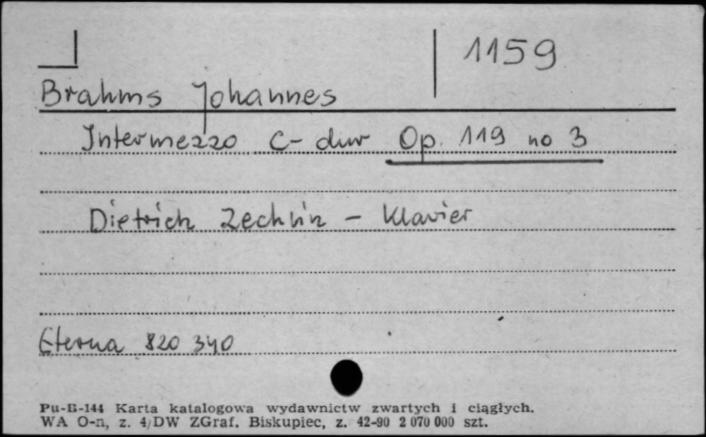 1159
Brahms Johannes
Intermezzo C-dur Op. 119 no 3
Dietrich Zechlin - Klavier
Eterna 820 340
Pu-B-144 Karta katalogowa wydawnictw zwartych i ciągłych.
WA O-n, z. 4/DW ZGraf. Biskupiec, z. 42-90 2 070 000 szt.